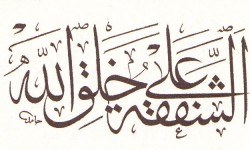 الشفقة على خلق الله